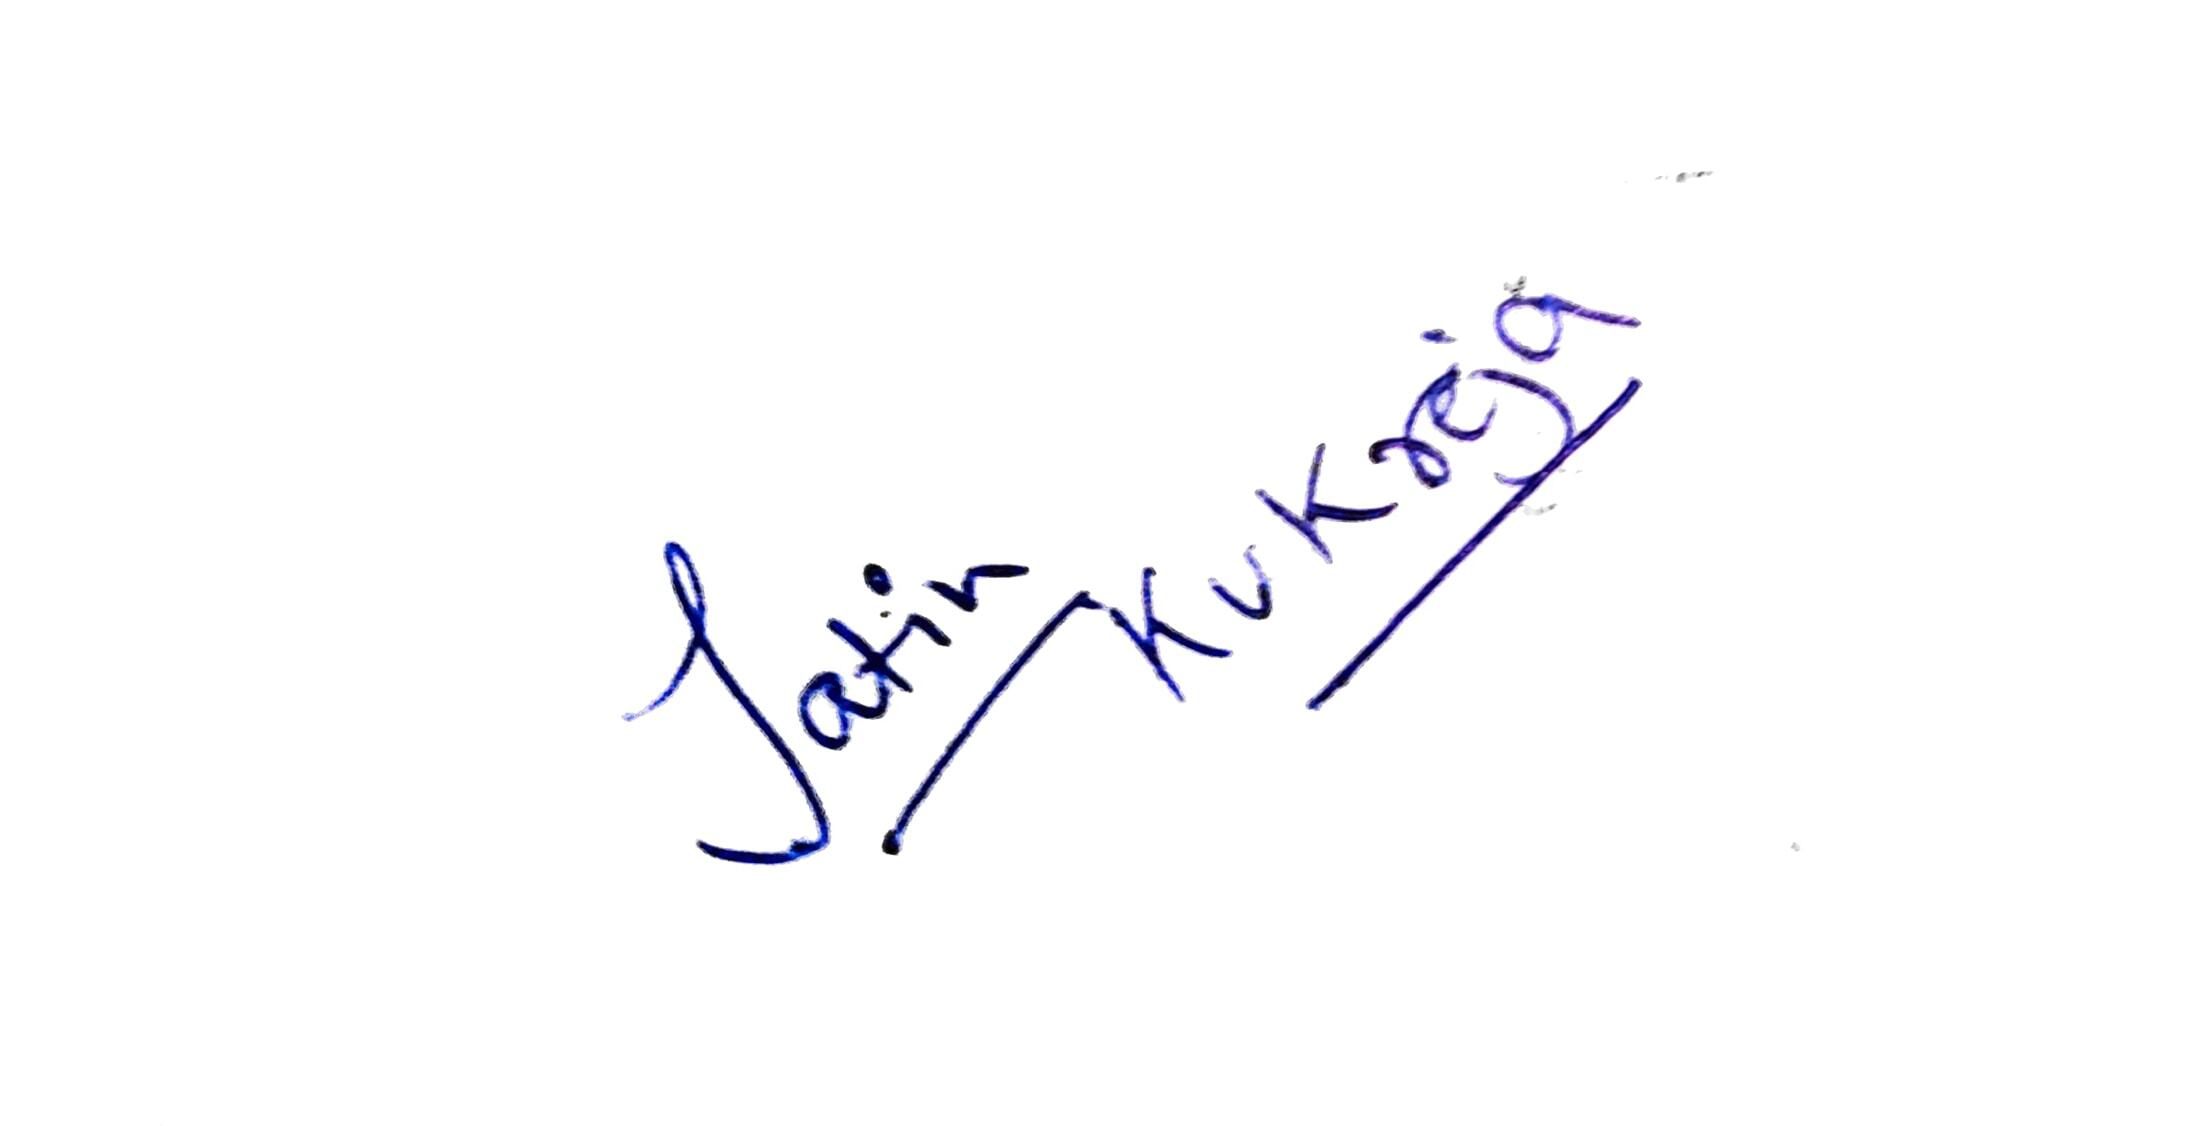 Jatin Kukreja